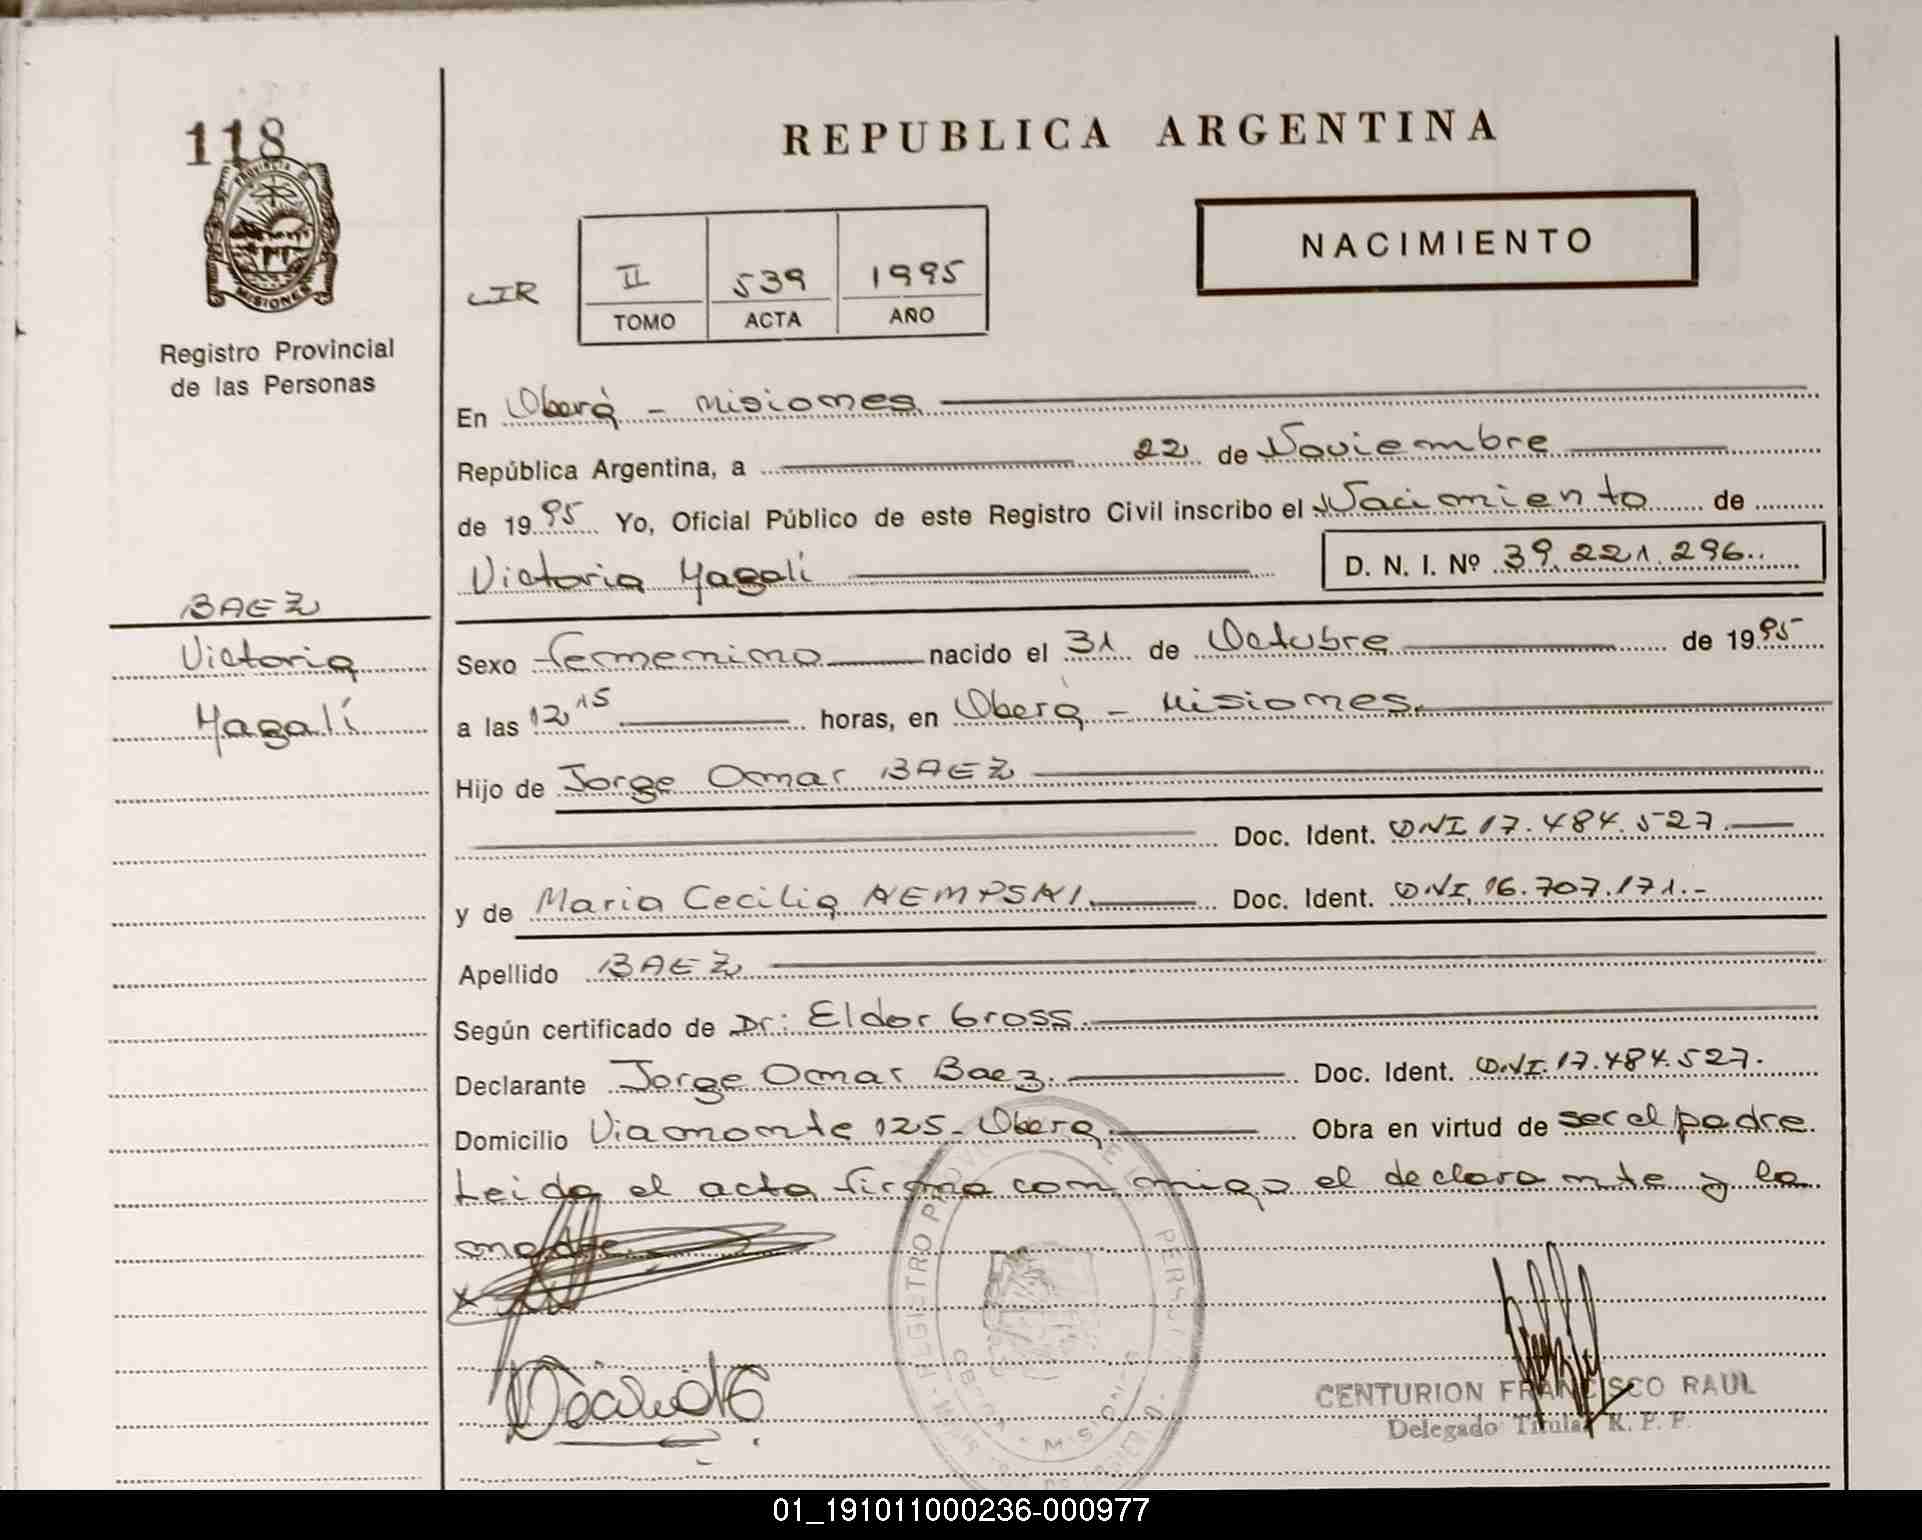 118
PROVINCIA D
MISIONES
Registro Provincial
de las Personas
REPUBLICA ARGENTINA
NACIMIENTO
II 539 1995
TOMO ACTA AÑO
En Oberá - Misiones
República Argentina, a 22 de Noviembre
de 1995 Yo, Oficial Público de este Registro Civil inscribo el Nacimiento de
Victoria Magalí D. N. I. Nº 39.221.296..
BAEZ
Victoria
Magalí
Sexo femenino nacido el 31 de Octubre de 1995
a las 12,15 horas, en Oberá - Misiones.
Hijo de Jorge Omar BAEZ
Doc. Ident. DNI 17.484.527.
y de Maria Cecilia Doc. Ident. DNI, 16.707.171.-
Apellido BAEZ
Según certificado de Dr: Eldor Gross.
Declarante Jorge Omar Baez. Doc. Ident. D.N.I. 17.484.527.
Domicilio Viamonte 125- Oberá. Obra en virtud de ser el padre.
Leida el acta firma con migo el declarante y la
madre.
REGISTRO PROV DE L PERSON
MISIONES
CENTURION FRANCISCO RAUL
Delegado Titular R. P. P.
01_191011000236-000977